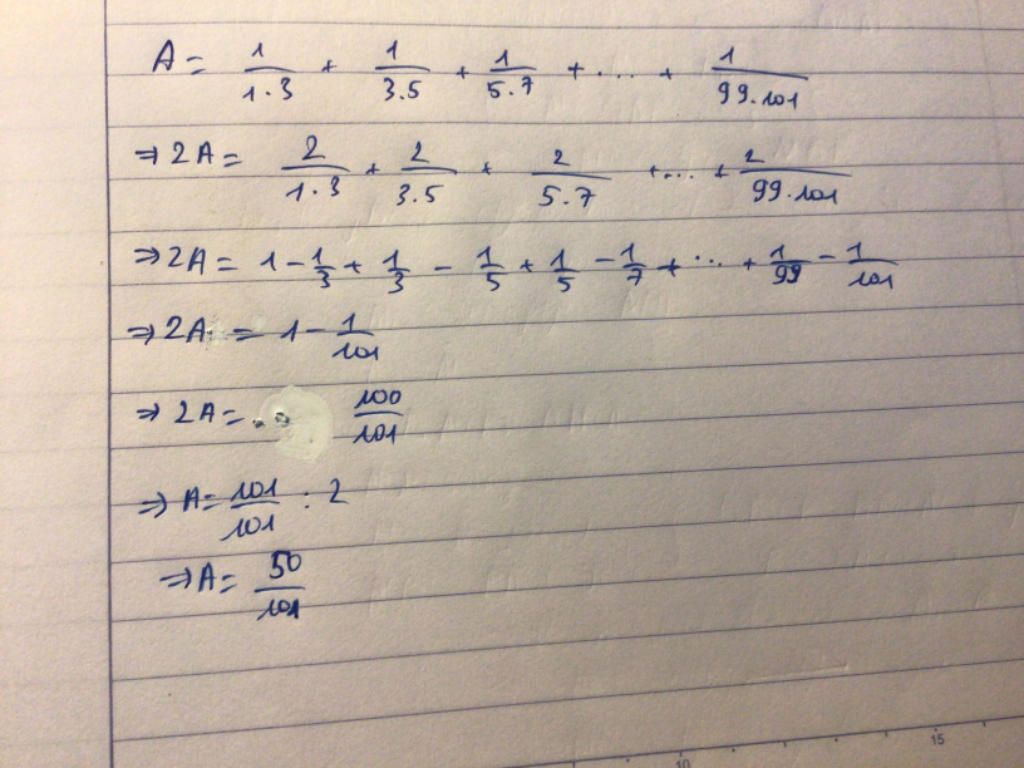 A = 1/1.3 + 1/3.5 + 1/5.7 + .... + 1/99.101
⇒ 2A = 2/1.3 + 2/3.5 + 2/5.7 +... + 2/99.101
⇒ 2A = 1 - 1/3 + 1/3 - 1/5 + 1/5 - 1/7 + ... + 1/99 - 1/101
⇒ 2A = 1 - 1/101
⇒ 2A = 100/101
⇒ A = 101/101 : 2
⇒ A = 50/101
10 15